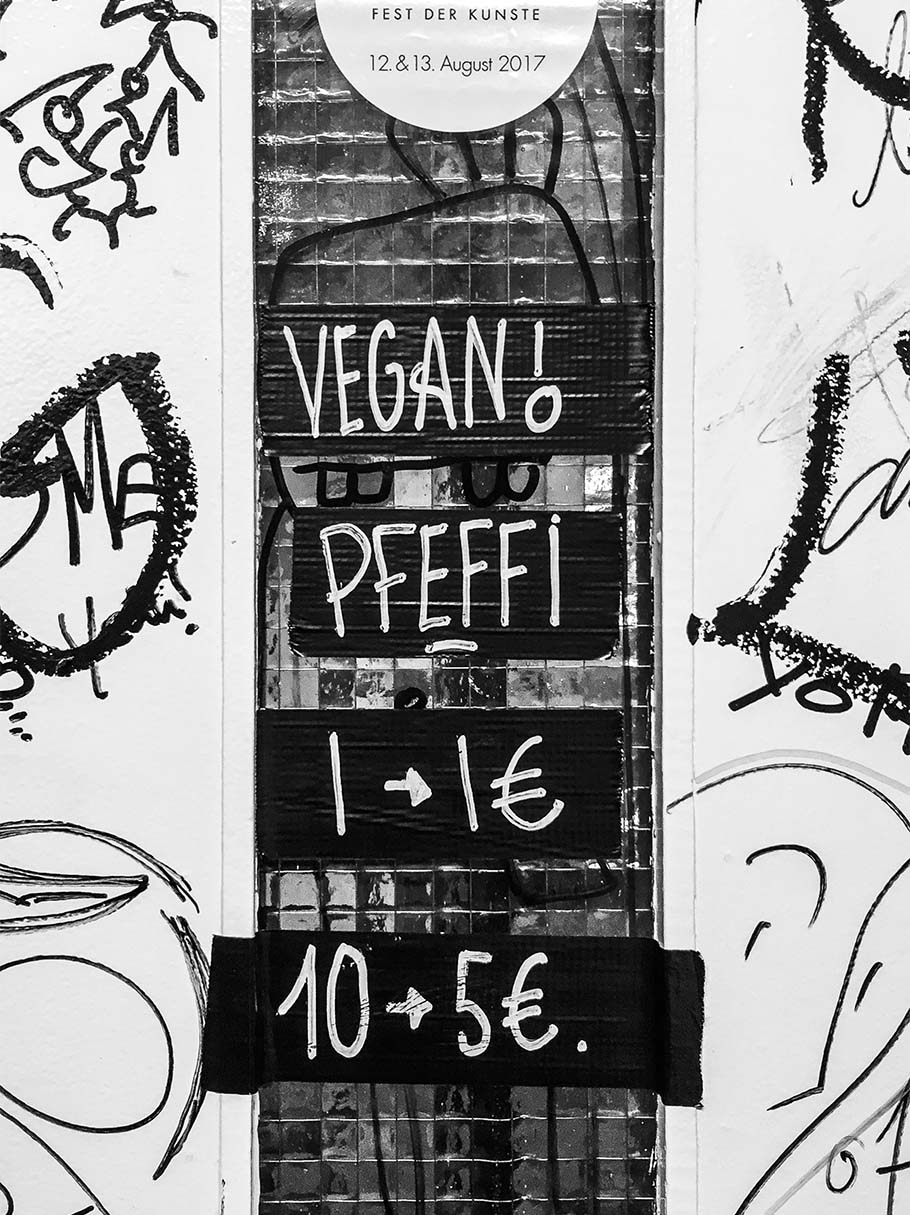 FEST DER KUNSTE
12. & 13. August 2017
VEGAN!
PFEFFI
1 → 1€
10 → 5€.